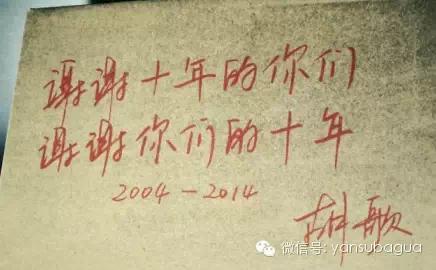 谢谢十年的你们
谢谢你们的十年
2004-2014
胡歌
微信号: yansubagua